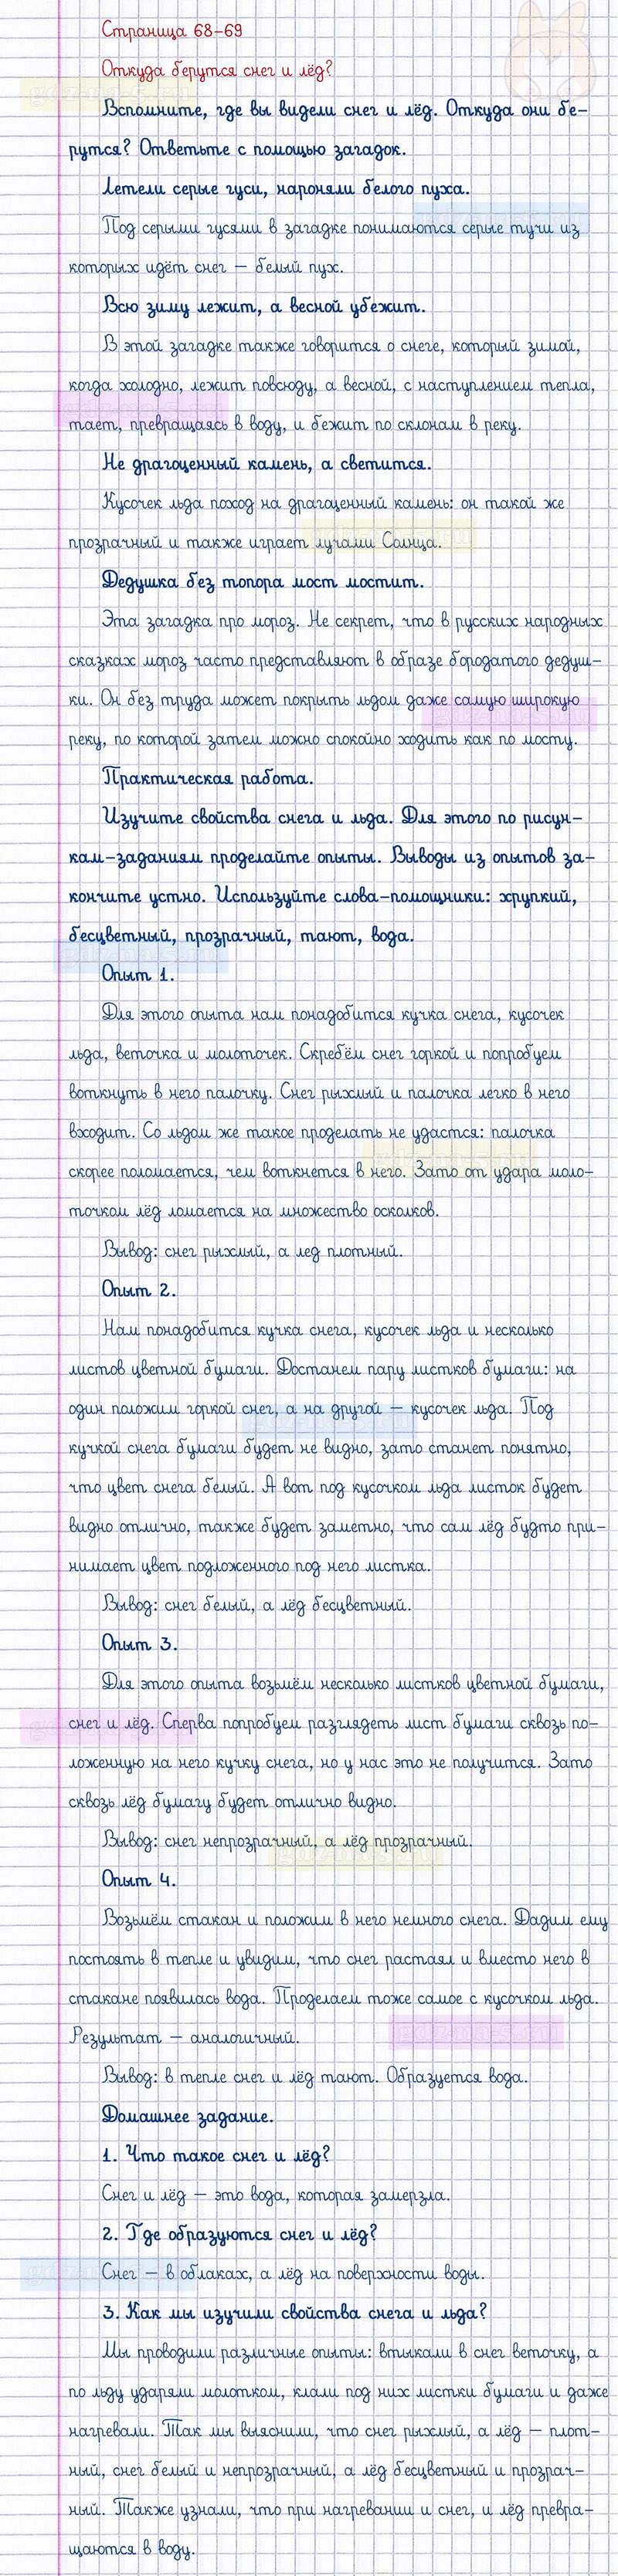 Страница 68-69
Откуда берутся снег и лёд?
Вспомните, где вы видели снег и лёд. Откуда они бе-
рутся? Ответьте с помощью загадок.
Летели серые гуси, нароняли белого пуха.
Под серыми гусями в загадке понимаются серые тучи из
которых идёт снег – белый пух.
Всю зиму лежит, а весной убежит.
В этой загадке также говорится о снеге, который зимой,
когда холодно, лежит повсюду, а весной, с наступлением тепла,
тает, превращаясь в воду, и бежит по склонам в реку.
Не драгоценный камень, а светится.
Кусочек льда похож на драгоценный камень: он такой же
прозрачный и также играет лучами Солнца.
Дедушка без топора мост мостит.
Эта загадка про мороз. Не секрет, что в русских народных
сказках мороз часто представляют в образе бородатого дедуш-
ки. Он без труда может покрыть льдом даже самую широкую
реку, по которой затем можно спокойно ходить как по мосту.
Практическая работа.
Изучите свойства снега и льда. Для этого по рисун-
кам-заданиям проделайте опыты. Выводы из опытов за-
кончите устно. Используйте слова-помощники: хрупкий,
бесцветный, прозрачный, тают, вода.
Опыт 1.
Для этого опыта нам понадобится кучка снега, кусочек
льда, веточка и молоточек. Скребём снег горкой и попробуем
воткнуть в него палочку. Снег рыхлый и палочка легко в него
входит. Со льдом же такое проделать не удастся: палочка
скорее поломается, чем воткнется в него. Зато от удара моло-
точком лёд ломается на множество осколков.
Вывод: снег рыхлый, а лед плотный.
Опыт 2.
Нам понадобится кучка снега, кусочек льда и несколько
листов цветной бумаги. Достанем пару листков бумаги: на
один положим горкой снег, а на другой – кусочек льда. Под
кучкой снега бумаги будет не видно, зато станет понятно,
что цвет снега белый. А вот под кусочком льда листок будет
видно отлично, также будет заметно, что сам лёд будто при-
нимает цвет подложенного под него листка.
Вывод: снег белый, а лёд бесцветный.
Опыт 3.
Для этого опыта возьмём несколько листков цветной бумаги,
снег и лёд. Сперва попробуем разглядеть лист бумаги сквозь по-
ложенную на него кучку снега, но у нас это не получится. Зато
сквозь лёд бумагу будет отлично видно.
Вывод: снег непрозрачный, а лёд прозрачный.
Опыт 4.
Возьмём стакан и положим в него немного снега. Дадим ему
постоять в тепле и увидим, что снег растаял и вместо него в
стакане появилась вода. Проделаем тоже самое с кусочком льда.
Результат – аналогичный.
Вывод: в тепле снег и лёд тают. Образуется вода.
Домашнее задание.
1. Что такое снег и лёд?
Снег и лёд – это вода, которая замерзла.
2. Где образуются снег и лёд?
Снег – в облаках, а лёд на поверхности воды.
3. Как мы изучили свойства снега и льда?
Мы проводили различные опыты: втыкали в снег веточку, а
по льду ударяли молотком, клали под них листки бумаги и даже
нагревали. Так мы выяснили, что снег рыхлый, а лёд – плот-
ный, снег белый и непрозрачный, а лёд бесцветный и прозрач-
ный. Также узнали, что при нагревании и снег, и лёд превра-
щаются в воду.